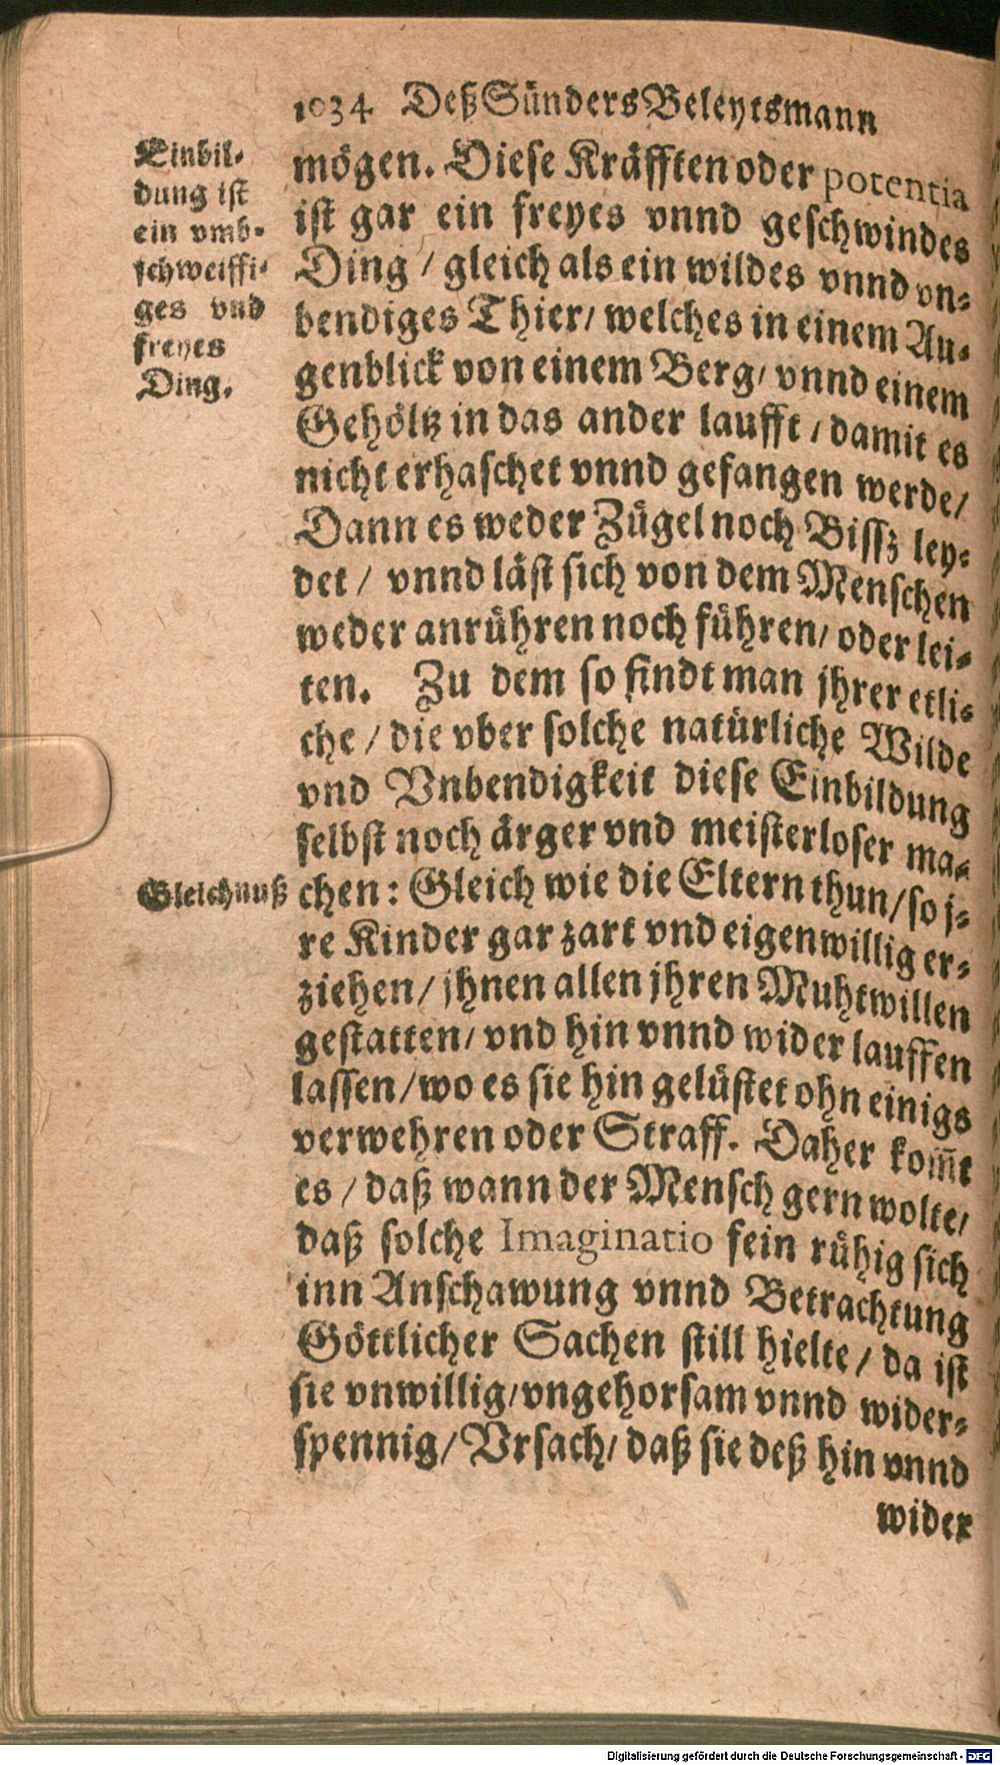 1034 Deß Sünders Beleytsmann
Einbil-
dung ist
ein vmb-
schweiffi-
ges vnd
freyes
Ding.
mögen. Diese Kräfften oder potentia
ist gar ein freyes vnnd geschwindes
Ding / gleich als ein wildes vnnd vn-
bendiges Thier / welches in einem Au-
genblick von einem Berg / vnnd einem
Gehöltz in das ander laufft / damit es
nicht erhaschet vnnd gefangen werde /
Dann es weder Zügel noch Bissz ley-
det / vnnd läst sich von dem Menschen
weder anrühren noch führen / oder lei-
ten. Zu dem so findt man jhrer etli-
che / die vber solche natürliche Wilde
vnd Vnbendigkeit diese Einbildung
selbst noch ärger vnd meisterloser ma-
Gleichnuß
chen : Gleich wie die Eltern thun / so j-
re Kinder gar zart vnd eigenwillig er-
ziehen / jhnen allen jhren Muhtwillen
gestatten / vnd hin vnnd wider lauffen
lassen / wo es sie hin gelüstet ohn einigs
verwehren oder Straff. Daher kom̃t
es / daß wann der Mensch gern wolte /
daß solche Imaginatio fein rühig sich
inn Anschawung vnnd Betrachtung
Göttlicher Sachen still hielte / da ist
sie vnwillig / vngehorsam vnnd wider-
spennig / Vrsach / daß sie deß hin vnnd
wider
Digitalisierung gefördert durch die Deutsche Forschungsgemeinschaft - DFG